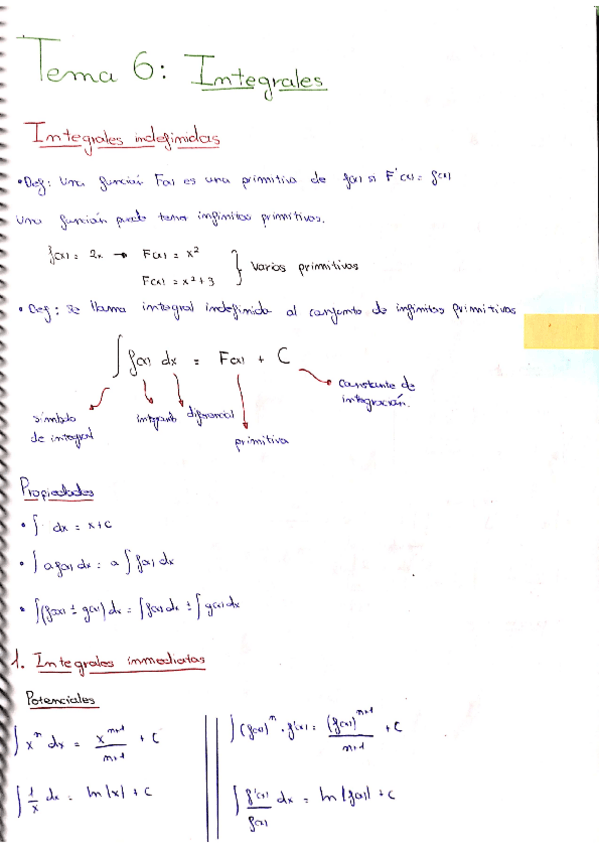 Tema 6: Integrales
Integrales indefinidas
• Def: Una función F(x) es una primitiva de f(x) si F'(x) = f(x)
Una función puede tener infinitas primitivas.
f(x) = 2x → F(x) = x²
F(x) = x² + 3 } Varias primitivas
• Def: Se llama integral indefinida al conjunto de infinitas primitivas
∫ f(x) dx = F(x) + C
símbolo de integral
integrando
diferencial
primitiva
constante de integración.
Propiedades
• ∫ dx = x + C
• ∫ a f(x) dx = a ∫ f(x) dx
• ∫ (f(x) ± g(x)) dx = ∫ f(x) dx ± ∫ g(x) dx
1. Integrales immediatas
Potenciales
∫ xⁿ dx = xⁿ⁺¹/n+1 + C
∫ (f(x))ⁿ · f'(x) = (f(x))ⁿ⁺¹/n+1 + C
∫ 1/x dx = ln|x| + C
∫ f'(x)/f(x) dx = ln|f(x)| + C